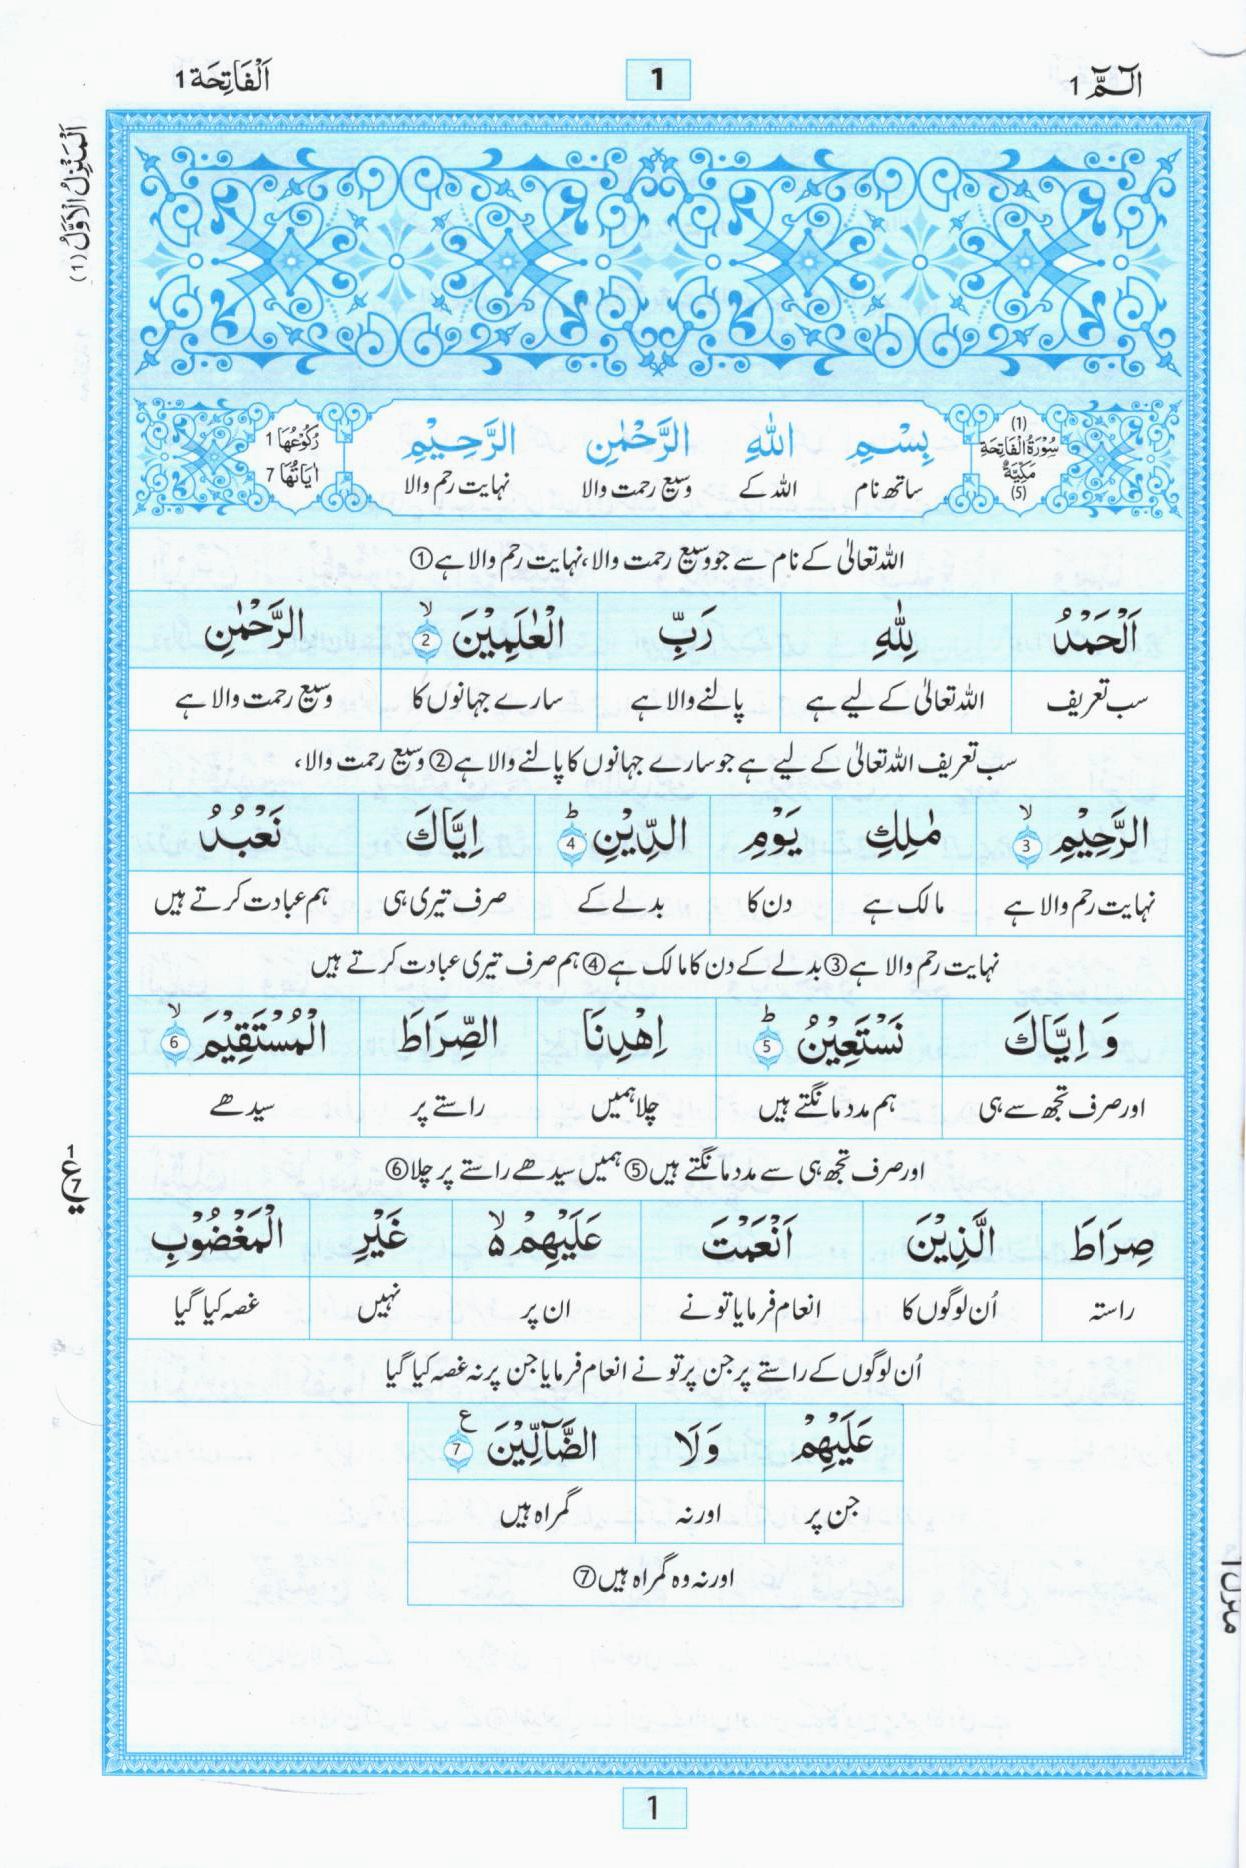 الٓـمّٓ 1
1
اَلْفَاتِحَة 1
اَلْمَنْزِلُ الْاَوَّلُ (1)
(1)
سُوْرَةُ الْفَاتِحَةِ
مَكِّيَّةٌ
(5)
بِسْمِ اللّٰهِ الرَّحْمٰنِ الرَّحِيْمِ
ساتھ نام اللہ کے وسیع رحمت والا نہایت رحم والا
رُكُوْعُهَا 1
اٰيَاتُهَا 7
اللہ تعالیٰ کے نام سے جو وسیع رحمت والا، نہایت رحم والا ہے ①
اَلْحَمْدُ لِلّٰهِ رَبِّ الْعٰلَمِيْنَ ۙ 2 الرَّحْمٰنِ
سب تعریف اللہ تعالیٰ کے لیے ہے پالنے والا ہے سارے جہانوں کا وسیع رحمت والا ہے
سب تعریف اللہ تعالیٰ کے لیے ہے جو سارے جہانوں کا پالنے والا ہے ② وسیع رحمت والا،
الرَّحِيْمِ ۙ 3 مٰلِكِ يَوْمِ الدِّيْنِ ؕ 4 اِيَّاكَ نَعْبُدُ
نہایت رحم والا ہے مالک ہے دن کا بدلے کے صرف تیری ہی ہم عبادت کرتے ہیں
نہایت رحم والا ہے ③ بدلے کے دن کا مالک ہے ④ ہم صرف تیری عبادت کرتے ہیں
وَ اِيَّاكَ نَسْتَعِيْنُ ؕ 5 اِهْدِنَا الصِّرَاطَ الْمُسْتَقِيْمَ ۙ 6
اور صرف تجھ سے ہی ہم مدد مانگتے ہیں چلا ہمیں راستے پر سیدھے
اور صرف تجھ ہی سے مدد مانگتے ہیں ⑤ ہمیں سیدھے راستے پر چلا ⑥
1
ع
7
صِرَاطَ الَّذِيْنَ اَنْعَمْتَ عَلَيْهِمْ ۙ۬ غَيْرِ الْمَغْضُوْبِ
راستہ اُن لوگوں کا انعام فرمایا تو نے ان پر نہیں غصہ کیا گیا
اُن لوگوں کے راستے پر جن پر تو نے انعام فرمایا جن پر نہ غصہ کیا گیا
عَلَيْهِمْ وَلَا الضَّآلِّيْنَ ع 7
جن پر اور نہ گمراہ ہیں
اور نہ وہ گمراہ ہیں ⑦
منزل ۱
1